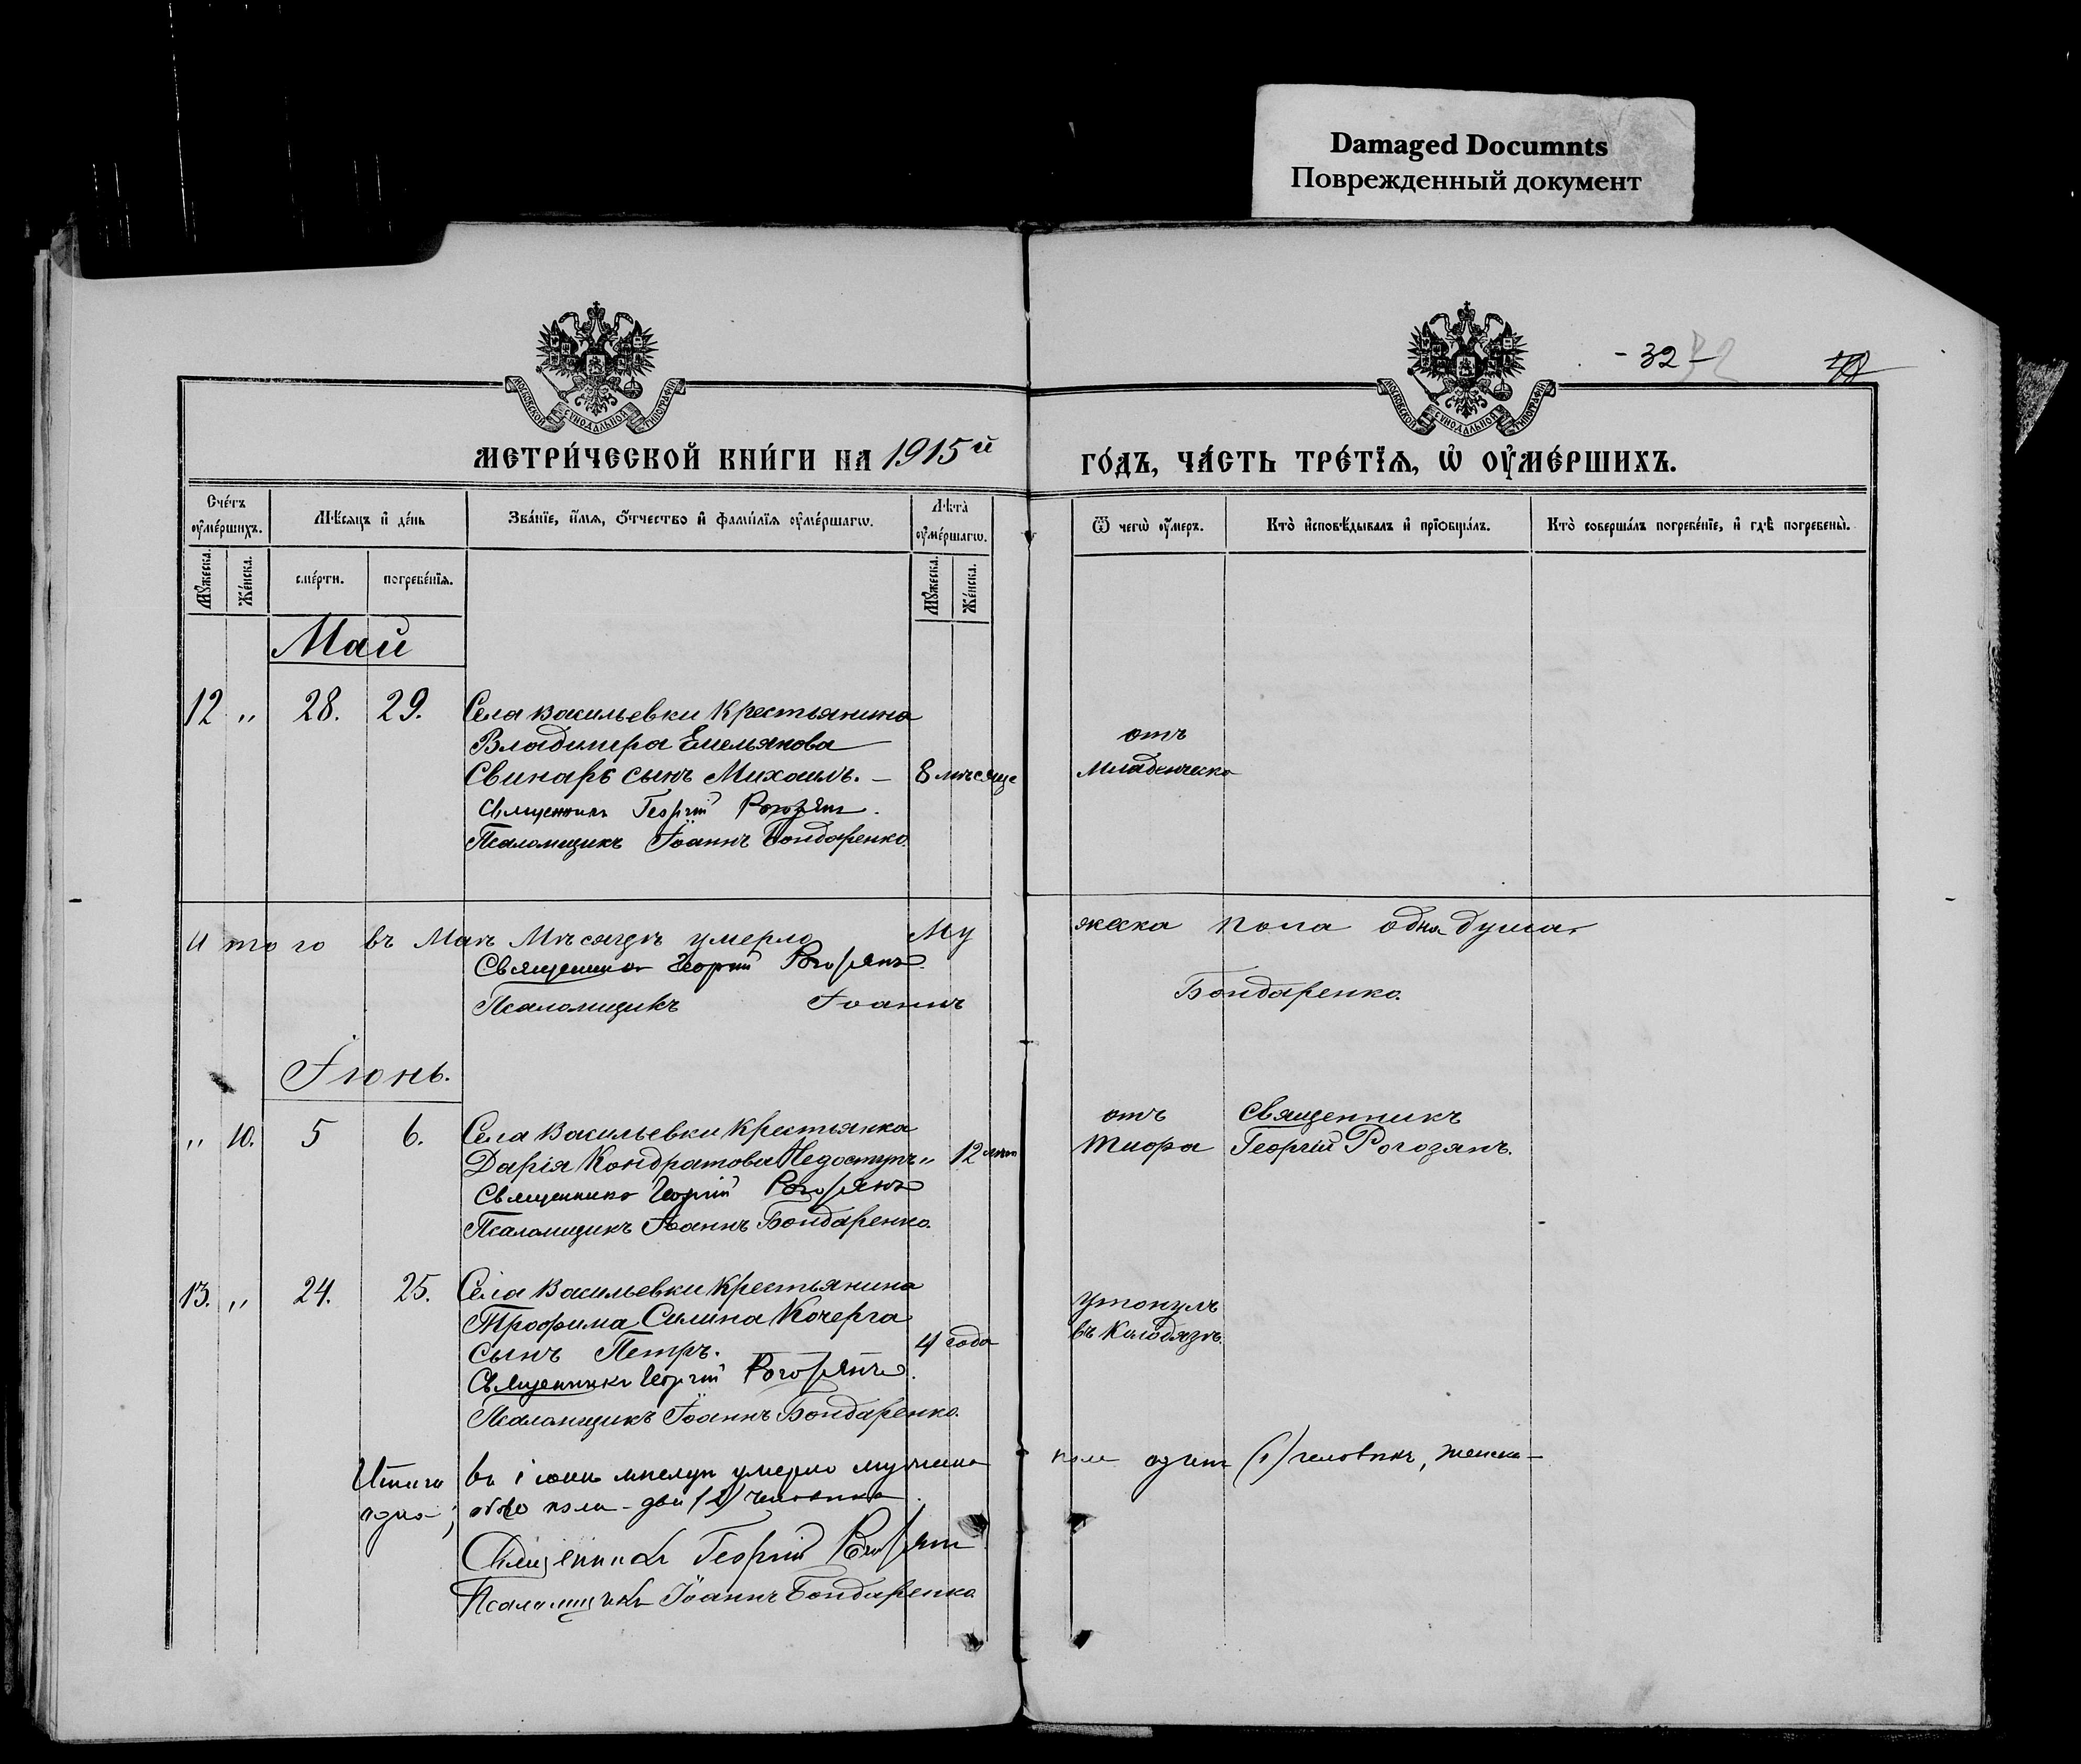 Damaged Documnts
Поврежденный документ
- 32 -
32
МОСКОВСКОЙ СѴНОДАЛЬНОЙ ТИПОГРАФІИ
МОСКОВСКОЙ СѴНОДАЛЬНОЙ ТИПОГРАФІИ
МЕТРИ́ЧЕСКОЙ КНИ́ГИ НА 1915й
ГО́ДЪ, ЧА́СТЬ ТРЕ́ТІѦ, Ѡ ОУ҆МЕ́РШИХЪ.
Сче́тъ оу҆ме́ршихъ.
Мꙋ́жеска.
Же́нска.
Мѣ́сѧцъ и҆ де́нь
сме́рти.
погребе́нїѧ.
Зва́нїе, и҆́мѧ, ѻ҆́тчество и҆ фами́лїѧ оу҆ме́ршагѡ.
Лѣ́та оу҆ме́ршагѡ.
Мꙋ́жеска.
Же́нска.
Ѿ чегѡ̀ оу҆́меръ.
Кто̀ и҆сповѣ́дывалъ и҆ прїѡбща́лъ.
Кто̀ соверша́лъ погребе́нїе, и҆ гдѣ̀ погребены̀.
Май
12 „ 28. 29. Села Васильевки Крестьянина
Владимира Емельянова
Свинарь сынъ Михаилъ. – 8 мѣсяце
Священникъ Георгій Рогозянъ.
Псаломщикъ Іоаннъ Бондаренко.
отъ
младенческо
Итого въ Маѣ Мѣсяцѣ умерло му
жеска пола одна душа.
Священникъ Георгій Рогозянъ.
Псаломщикъ Іоаннъ
Бондаренко.
Іюнь.
„ 10. 5 6. Села Васильевки Крестьянка
Дарія Кондратова Недоступъ „ 12 лѣт
Священникъ Георгій Рогозянъ
Псаломщикъ Іоаннъ Бондаренко.
отъ
тифа
Священникъ
Георгій Рогозянъ.
13. „ 24. 25. Села Васильевки Крестьянина
Трофима Силина Кочерга
сынъ Петръ. 4 года
Священникъ Георгій Рогозянъ.
Псаломщикъ Іоаннъ Бондаренко.
утонулъ
въ Колодязѣ.
Итого въ іюнѣ мѣсяцѣ умерло
пола одинъ (1) человѣкъ, женска –
одна; обоего пола – два (2) человѣка
Священникъ Георгій Рогозянъ
Псаломщикъ Іоаннъ Бондаренко